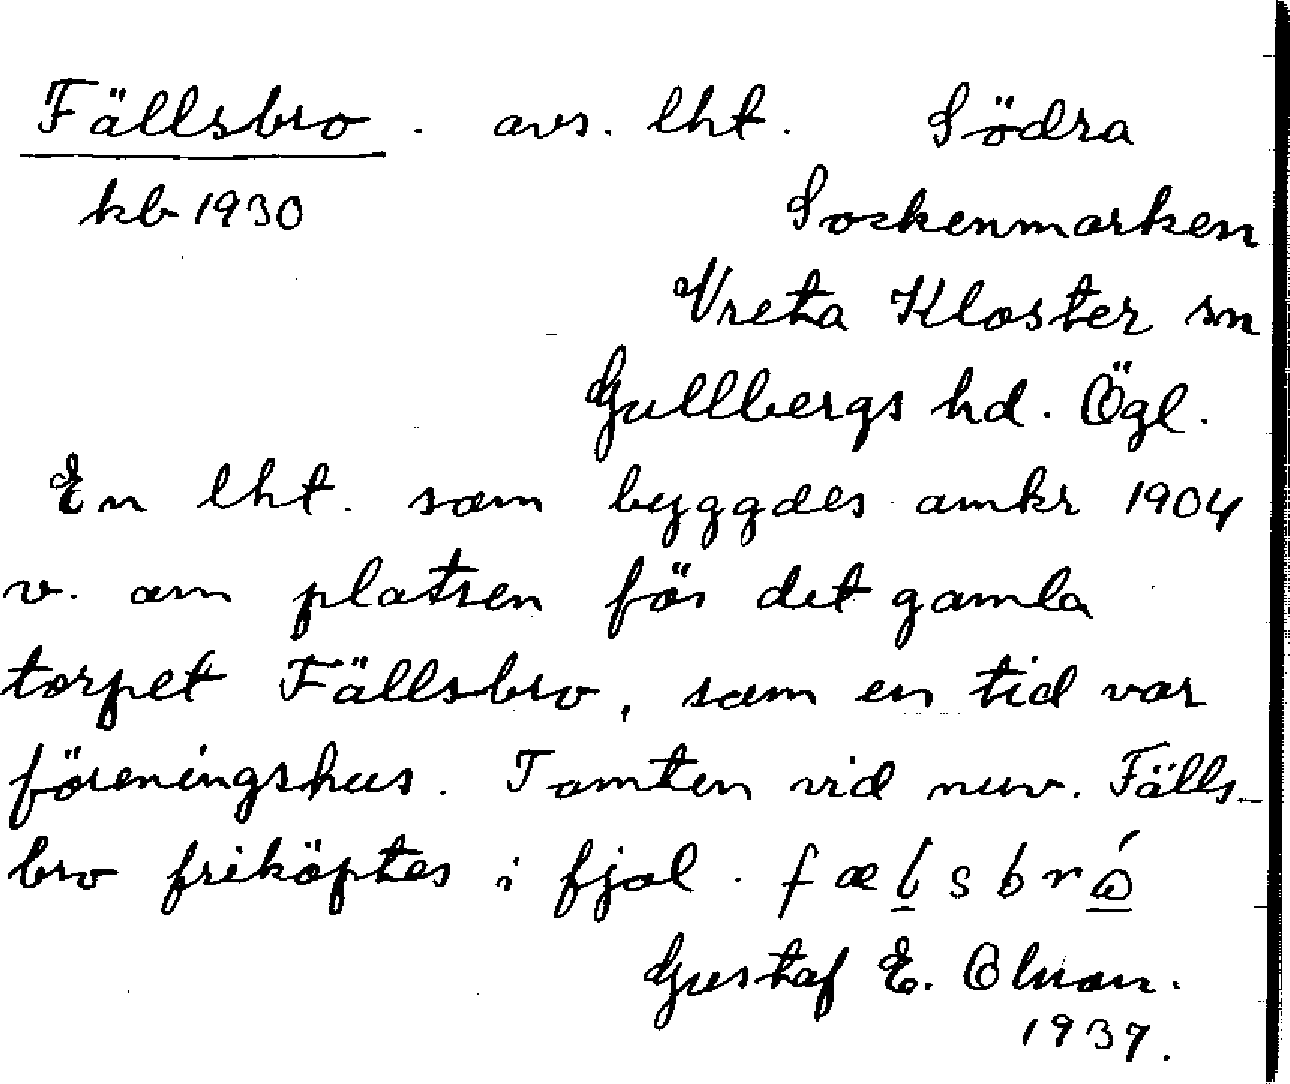 Fällsbro. avs. lht. Södra
kb 1930 Sockenmarken
Vreta Kloster sn
Gullbergs hd. Ögl.
En lht. som byggdes omkr 1904
v. om platsen för det gamla
torpet Fällsbro, som en tid var
föreningshus. Tomten vid nuv. Fälls-
bro friköptes i fjol. fælsbró
Gustaf E. Olsson.
1937.